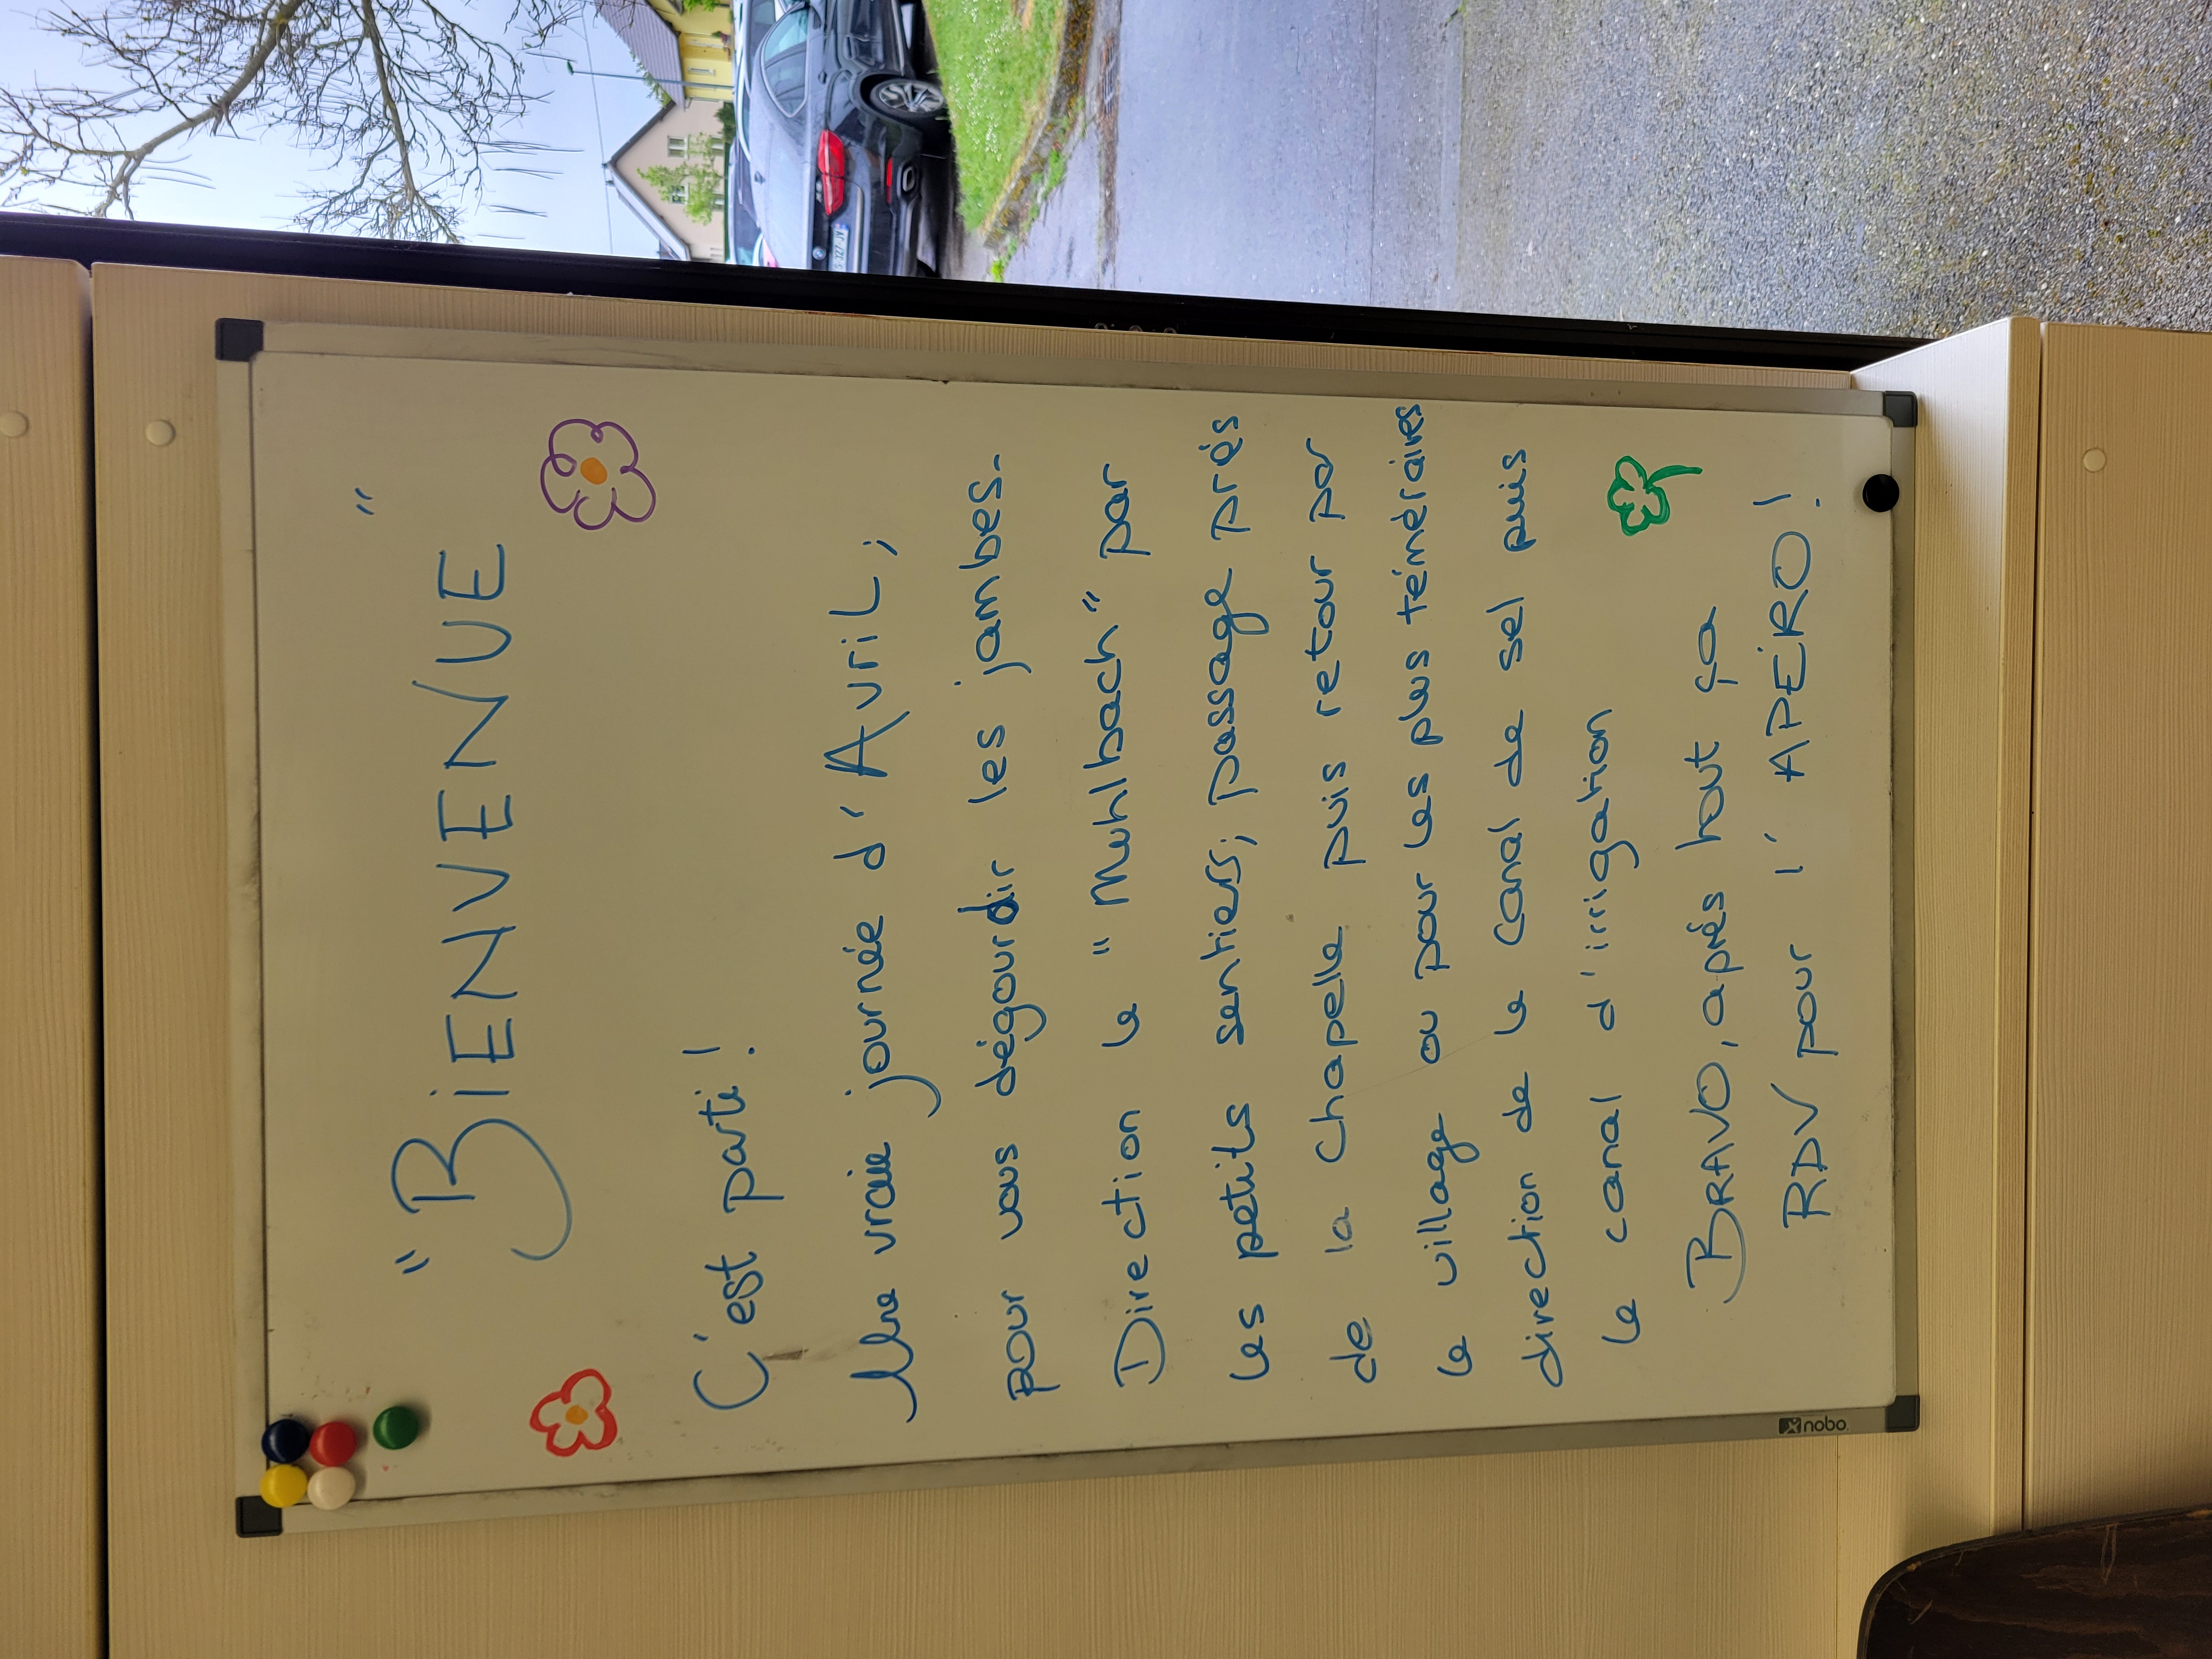 " BiENVENUE "
C'est parti!
Une vraie journée d'Avril;
pour vous dégourdir les jambes.
Direction le "Muhlbach" par
les petits sentiers; passage près
de la Chapelle puis retour par
le village ou pour les plus téméraires
direction de le Canal de sel puis
le canal d'irrigation
BRAVO, après tout ça
RDV pour l'APÉRO!
nobo